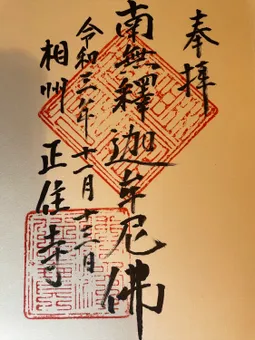 奉拜
南無釋迦牟尼佛
令和三年十一月十三日
相州 正住寺